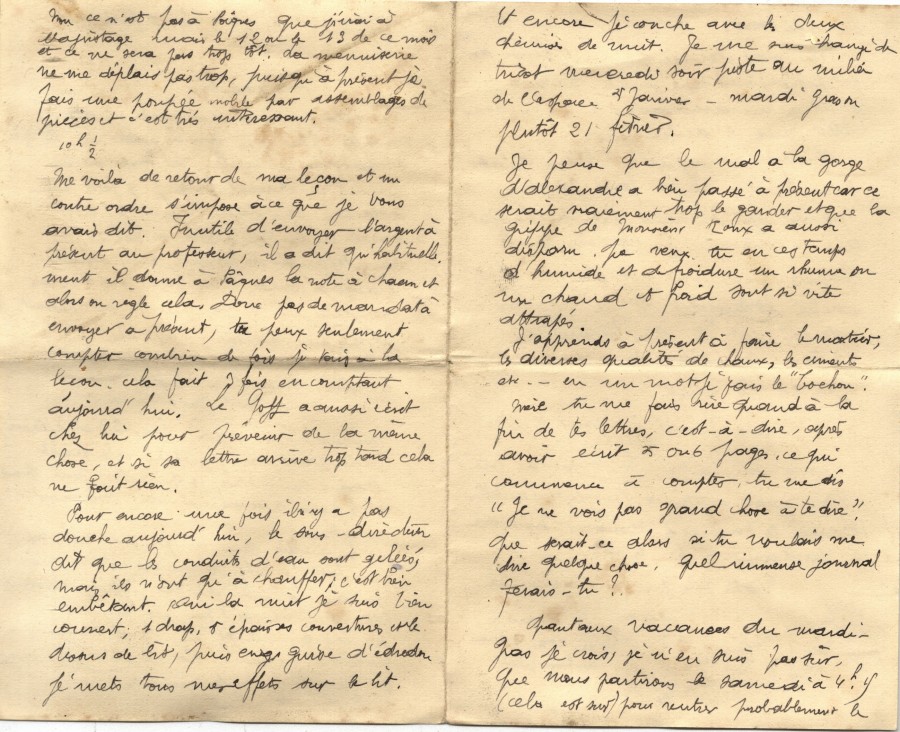 ce n'est pas à Pâques que j'irai à
mais le 12 ou le 13 de ce mois
et ce ne sera pas trop tôt. La menuiserie
ne me déplais pas trop, puisqu'à présent je
fais une poupée mobile par assemblages de
pièces et c'est très intéressant.
10h ½
Me voilà de retour de ma leçon et un
contre ordre s'impose à ce que je vous
avais dit. Inutile d'envoyer l'argent à
présent au professeur, il a dit qu'habituelle-
ment il donne à Pâques la note à chacun et
alors on règle cela. Donc pas de mandat à
envoyer à présent, tu peux seulement
compter combien de fois je vais à la
leçon. cela fait 7 fois en comptant
aujourd'hui. Le Goff a aussi écrit
chez lui pour prévenir de la même
chose, et si sa lettre arrive trop tard cela
ne fait rien.
Pour encore une fois il n'y a pas
douche aujourd'hui, le sous-directeur
dit que les conduits d'eau sont gelées,
mais ils n'ont qu'à chauffer, c'est bien
embêtant. la nuit je suis bien
couvert; 1 drap, épaisses couvertures et le
dessus de lit, puis en guise d'édredon
je mets tous mes effets sur le lit.
Et encore je couche avec les deux
chemises de nuit. Je me suis changé de
tricot mercredi soir juste au milieu
de l'espace Janvier - mardi gras ou
plutôt 21 février.
Je pense que le mal à la gorge
d'alexandre a bien passé à présent car ce
serait vraiement trop le garder et que la
grippe de Monsieur Roux a aussi
disparu. que veux-tu en ces temps
d'humide et de froidure un rhume ou
un chaud et froid sont si vite
attrapés.
J'apprends à présent à faire le mortier,
les diverses qualités de chaux, les ciments
etc... en un mot je fais le "bochou".
Mère tu me fais rire quand à la
fin de tes lettres, c'est-à-dire, après
avoir écrit 5 ou 6 pages, ce qui
commence à compter, tu me dis
"Je ne vois pas grand chose à te dire".
que serait-ce alors si tu voulais me
dire quelque chose, quel immense journal
ferais-tu?
Quant aux vacances du mardi-
gras je crois, je n'en suis pas sûr,
que nous partirons le samedi à 4h.
(cela est sûr) pour rentrer probablement le